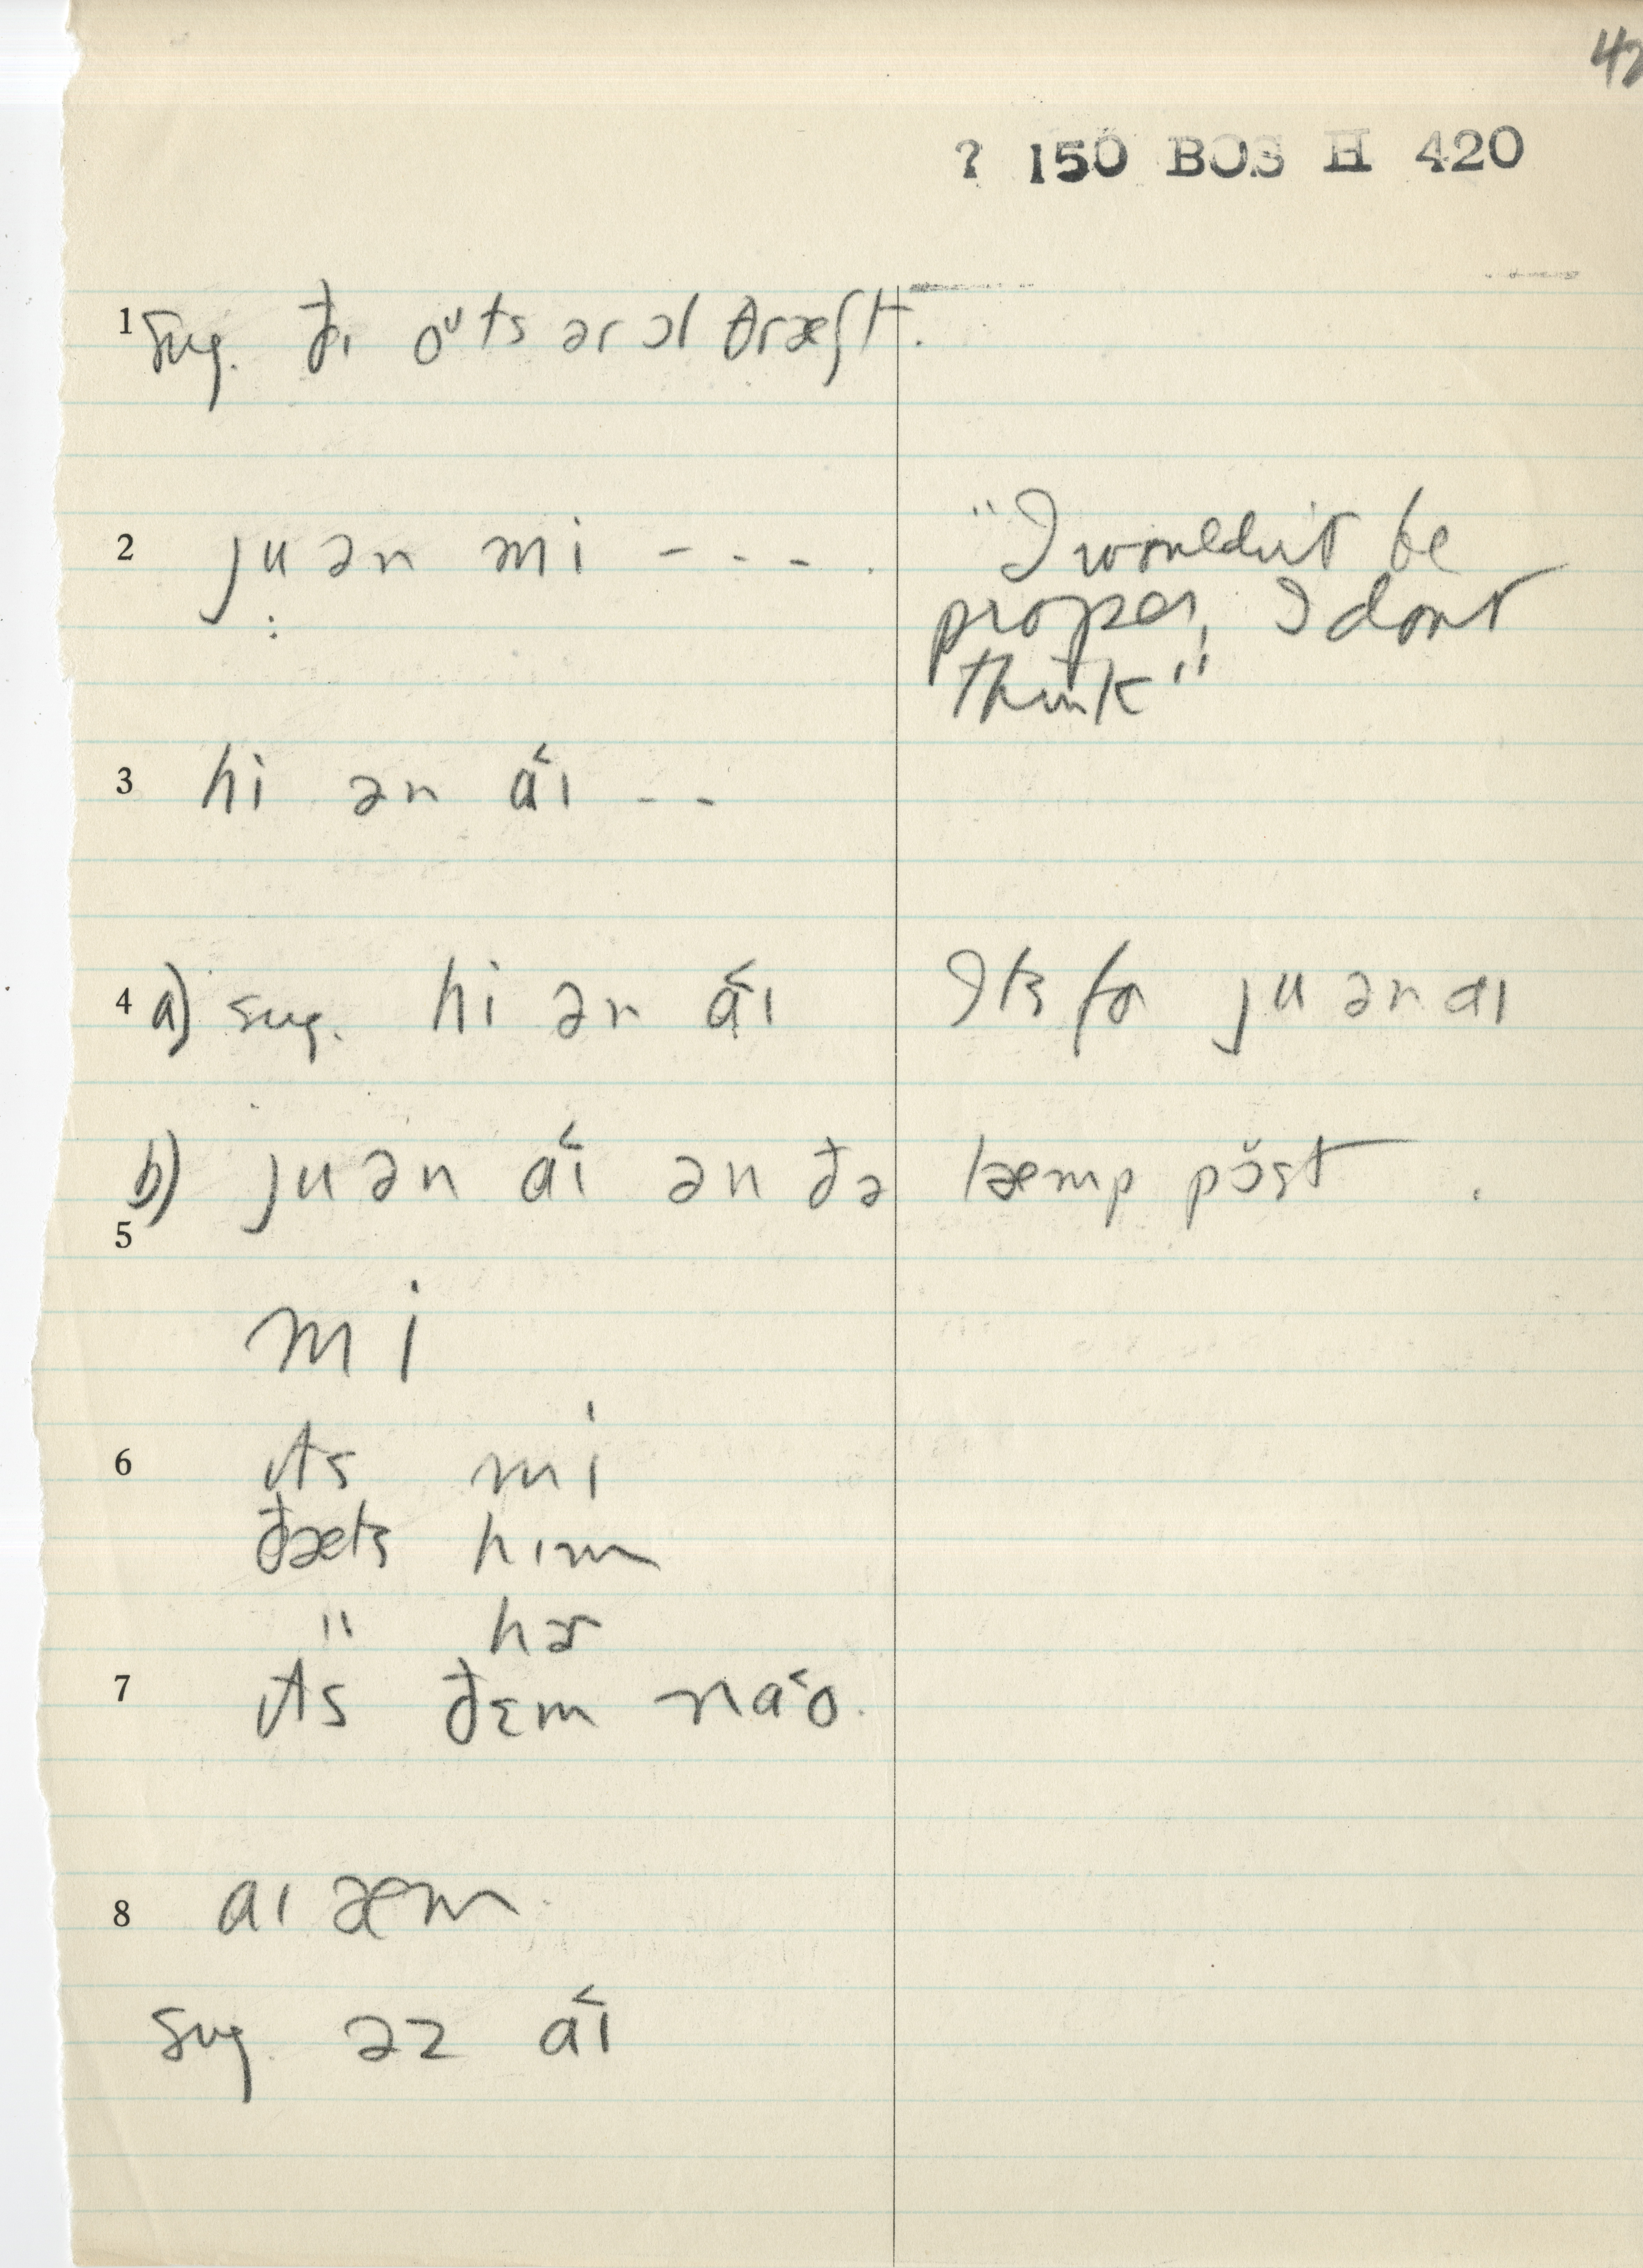 42
? 150 BOS H 420
1 sug. ðɪ oᵘts ər ɔl θræʃt.
2 ju ən mi - - - - .
"I wouldn't be
proper, I dont
think"
3 hi ən a˂ɪ - -
4 a) sug. hi ən a˂ɪ Its for ju ən aɪ
b) ju ən a˂ɪ ən ðə læmp pŏst .
5
mi
6 ɪts mi
ðæts hɪm
" hɚ
7 ɪts ðɛm na˂o.
8 aɪ æm.
sug. əz a˂ɪ